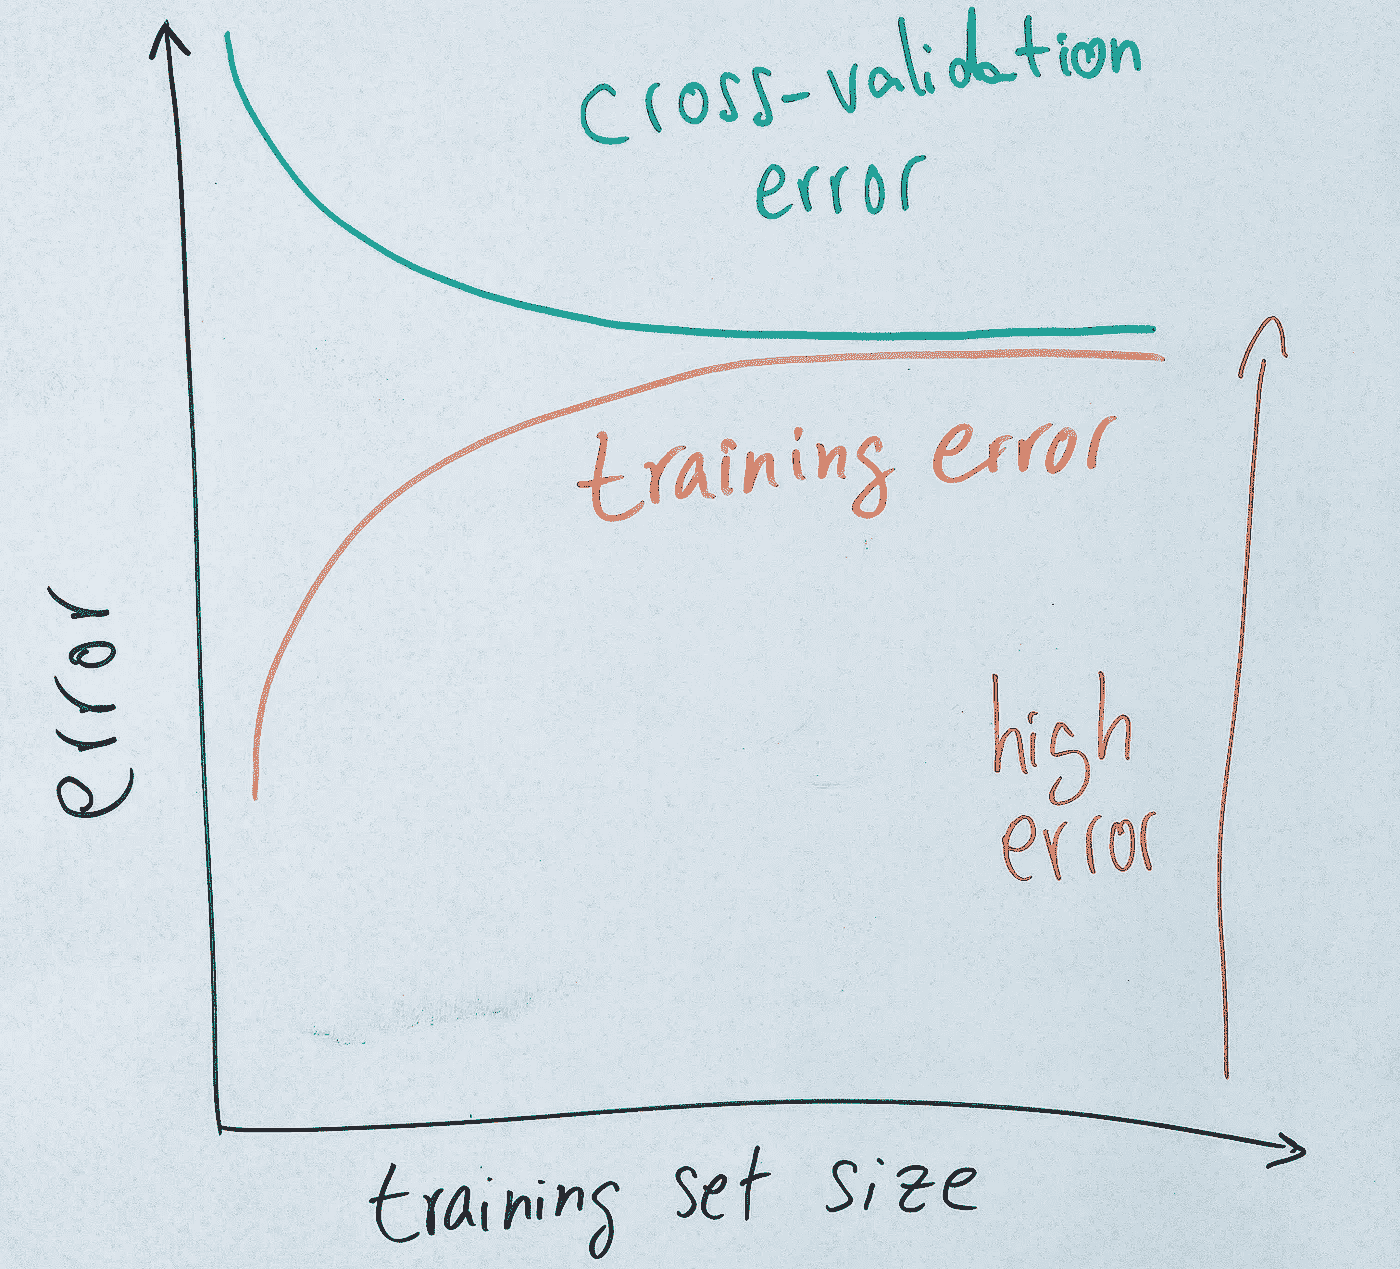 cross-validation
error
training error
error
high
error
training set size